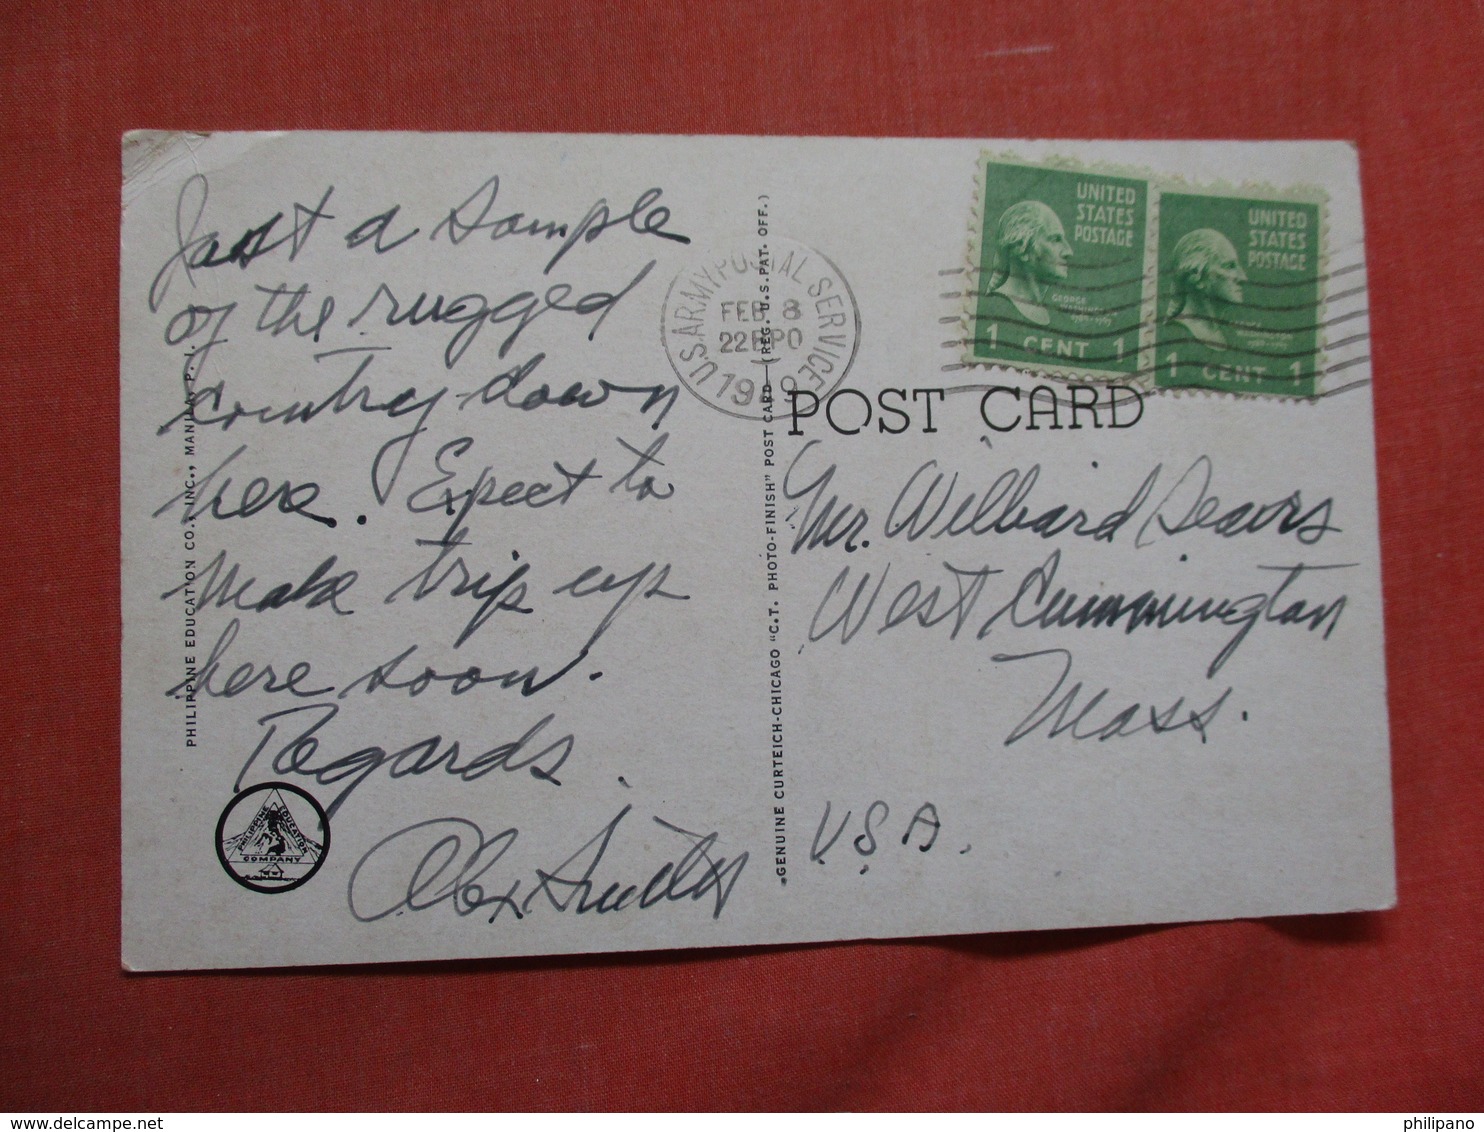 Just a sample
of the rugged
country down
here. Expect to
make trip up
here soon.
Regards.
Alex Smith
PHILIPPINE EDUCATION CO., INC., MANILA, P. I.
PHILIPPINE EDUCATION
COMPANY
GENUINE CURTEICH-CHICAGO "C.T. PHOTO-FINISH" POST CARD (REG. U.S. PAT. OFF.)
U.S. ARMY POSTAL SERVICE
FEB 8
19
UNITED
STATES
POSTAGE
GEORGE
WASHINGTON
1 CENT 1
UNITED
STATES
POSTAGE
1 CENT 1
POST CARD
Mr. Willard Sears
West Cummington
Mass.
U.S.A.
delcampe.net
philipano